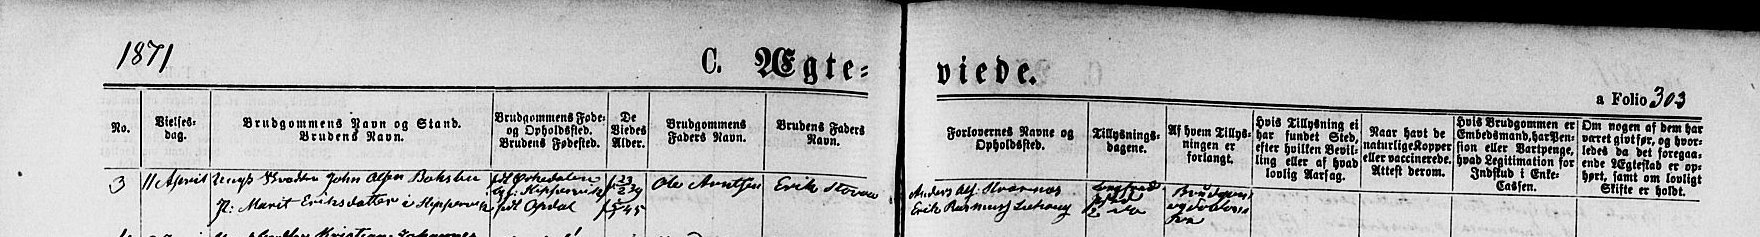 1871
C. Ægte-
viede.
a Folio 303
No.
Vielses-
dag.
Brudgommens Navn og Stand.
Brudens Navn.
Brudgommens Føde-
og Opholdssted.
Brudens Fødested.
De
Viedes
Alder.
Brudgommens
Faders Navn.
Brudens Faders
Navn.
Forlovernes Navne og
Opholdssted.
Tillysnings-
dagene.
Af hvem Tillys-
ningen er
forlangt.
Hvis Tillysning ei
har fundet Sted,
efter hvilken Bevil-
ling eller af hvad
lovlig Aarsag.
Naar havt de
naturlige Kopper
eller vaccinerede.
Attest derom.
Hvis Brudgommen er
Embedsmand, har Pen-
sion eller Vartpenge,
hvad Legitimation for
Indskud i Enke-
Cassen.
Om nogen af dem har
været givtfør, og hvor-
ledes da det foregaa-
ende Ægteskab er op-
hørt, samt om lovligt
Skifte er holdt.
3
11 April
Ungk John Olsen
P: Marit Eriksdatter i
fdt Orkedalen
fdt Opdal
f 23/2 39
45
Ole Arntsen
Erik
Anders
Erik Rasmus